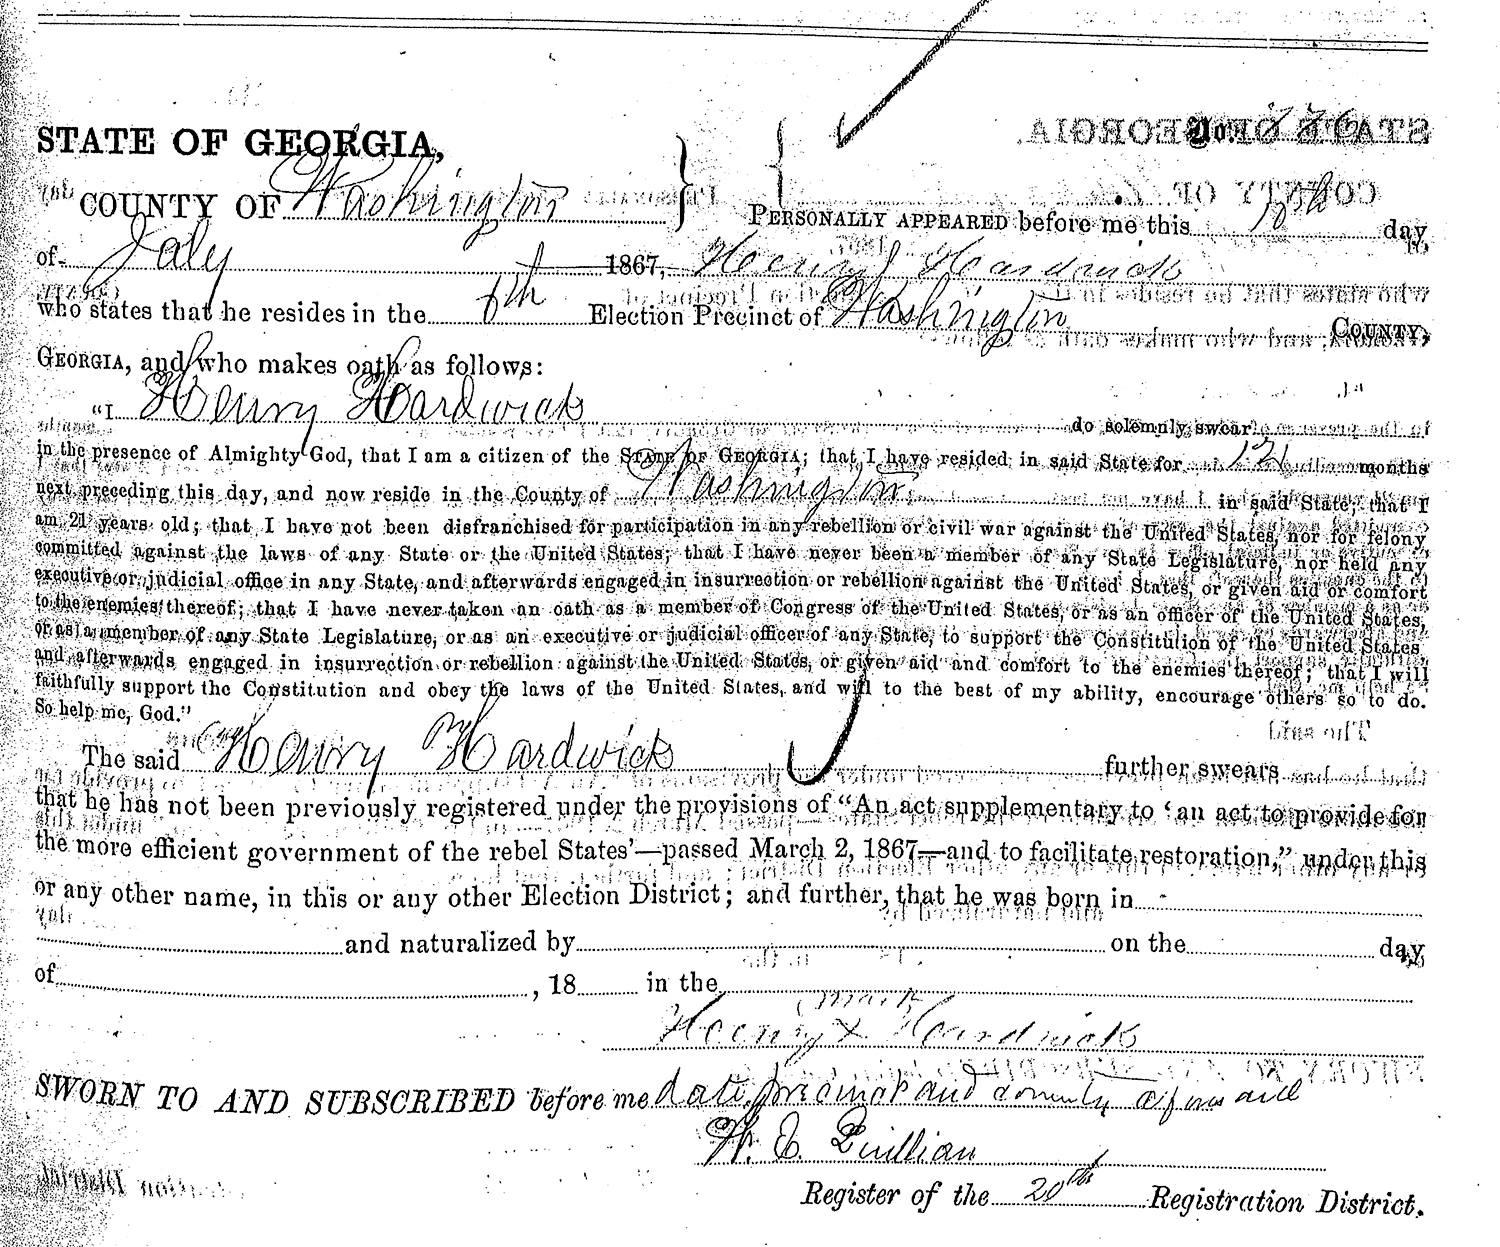 STATE OF GEORGIA,
No.
COUNTY OF Washington
PERSONALLY APPEARED before me this day
of July 1867, Henry Hardwick
who states that he resides in the Election Precinct of Washington COUNTY,
GEORGIA, and who makes oath as follows:
"I Henry Hardwick do solemnly swear
in the presence of Almighty God, that I am a citizen of the STATE OF GEORGIA; that I have resided in said State for months
next preceding this day, and now reside in the County of Washington in said State; that I
am 21 years old; that I have not been disfranchised for participation in any rebellion or civil war against the United States, nor for felony
committed against the laws of any State or the United States; that I have never been a member of any State Legislature, nor held any
executive or judicial office in any State, and afterwards engaged in insurrection or rebellion against the United States, or given aid or comfort
to the enemies thereof; that I have never taken an oath as a member of Congress of the United States, or as an officer of the United States,
or as a member of any State Legislature, or as an executive or judicial officer of any State, to support the Constitution of the United States
and afterwards engaged in insurrection or rebellion against the United States, or given aid and comfort to the enemies thereof; that I will
faithfully support the Constitution and obey the laws of the United States, and will to the best of my ability, encourage others so to do.
So help me, God."
The said Henry Hardwick further swears
that he has not been previously registered under the provisions of "An act supplementary to 'an act to provide for
the more efficient government of the rebel States'—passed March 2, 1867—and to facilitate restoration," under this
or any other name, in this or any other Election District; and further, that he was born in
and naturalized by on the day
of , 18 in the
mark
Henry X Hardwick
SWORN TO AND SUBSCRIBED before me date, precinct and county aforesaid
Quillian
Register of the 20th Registration District.